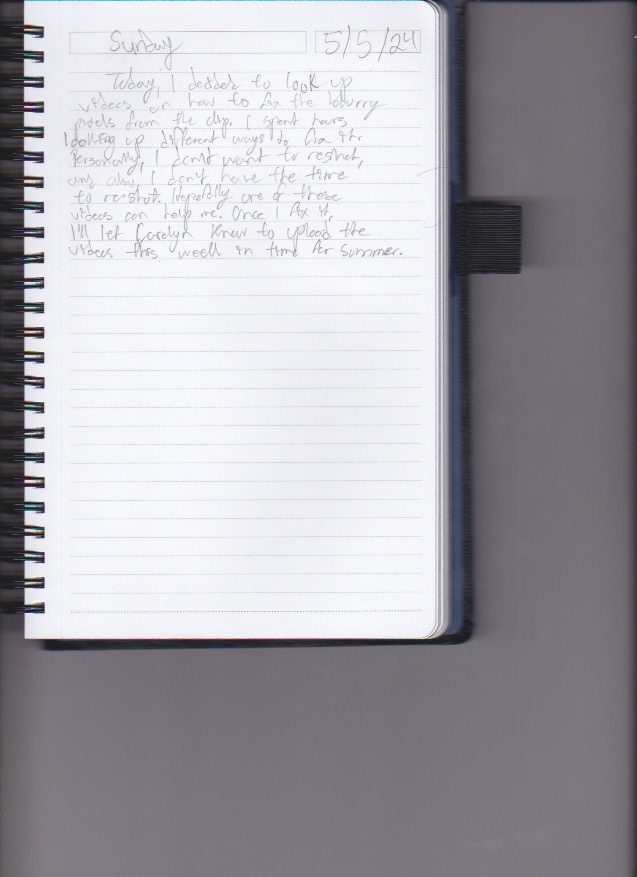 Sunday
5/5/24
Today, I decided to look up
videos on how to fix the blurry
pixels from the clip. I spent hours
looking up different ways to fix it.
Personally, I don't want to reshoot,
and also, I don't have the time
to re-shot. Hopefully one of those
videos can help me. Once I fix it,
I'll let Carolyn know to upload the
videos this week in time for summer.